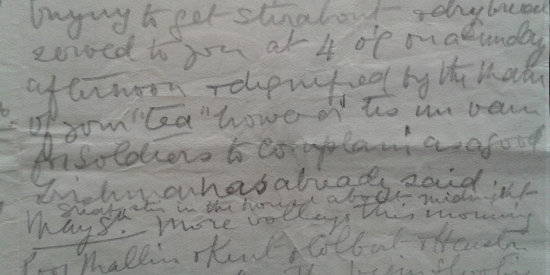 trying to get stirabout & dry bread
served to you at 4 o'c on a Sunday
afternoon & dignified by the name
of your "tea" however 'tis in vain
for soldiers to complain as a good
Irishman has already said.
in the house about midnight
May 8th. More volleys this morning
Poor Mallin & Kent & Colbert & Heuston